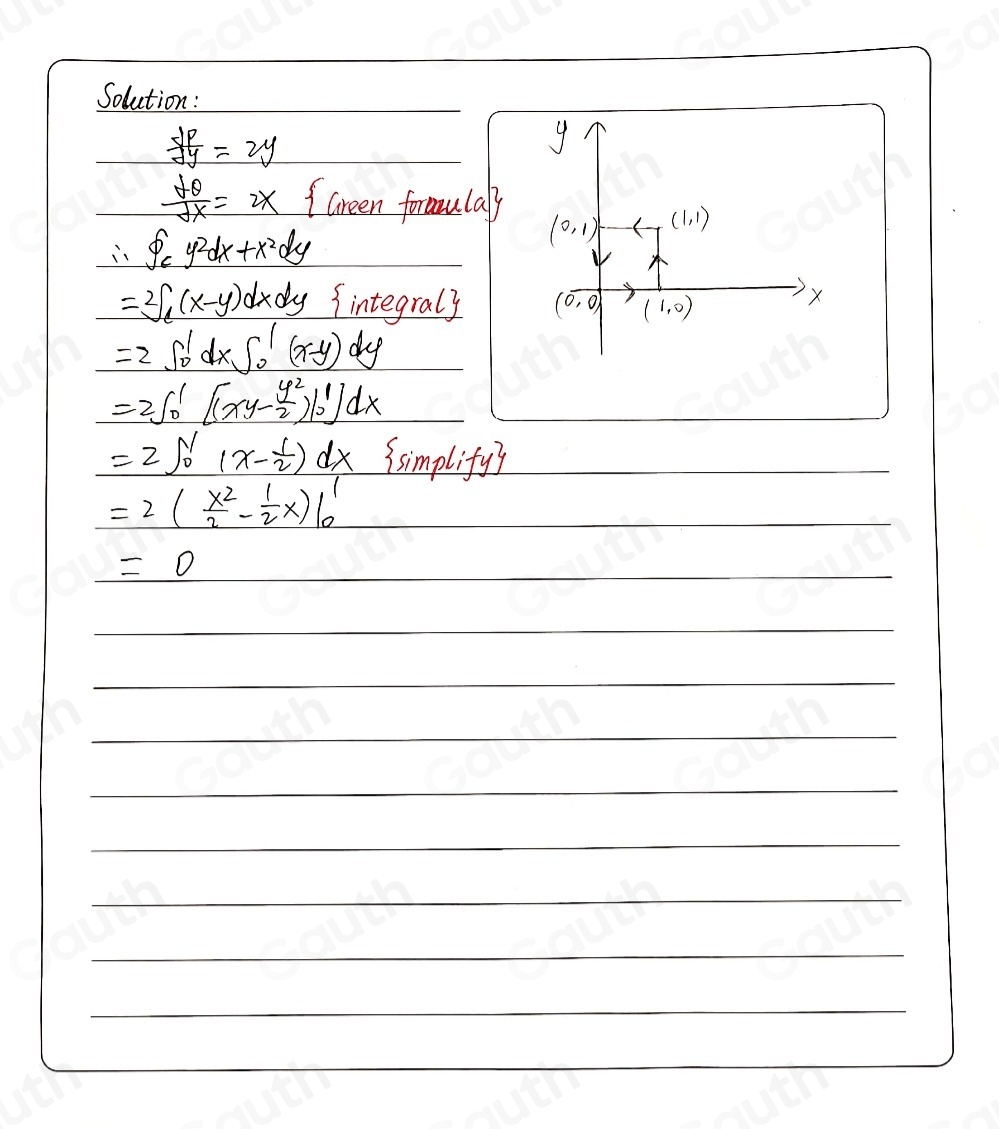 Solution:
dP/dy = 2y
dQ/dx = 2x {Green formula}
∴ ∮c y²dx+x²dy
=2∫c(x-y)dxdy {integral}
=2 ∫0^1 dx ∫0^1 (x-y) dy
=2∫0^1 [(xy-y²/2)|0^1]dx
=2 ∫0^1 (x-1/2) dx {simplify}
=2 (x²/2 - 1/2 x)|0^1
= 0
y
(0,1) (1,1)
(0,0) (1,0) x
Gauth